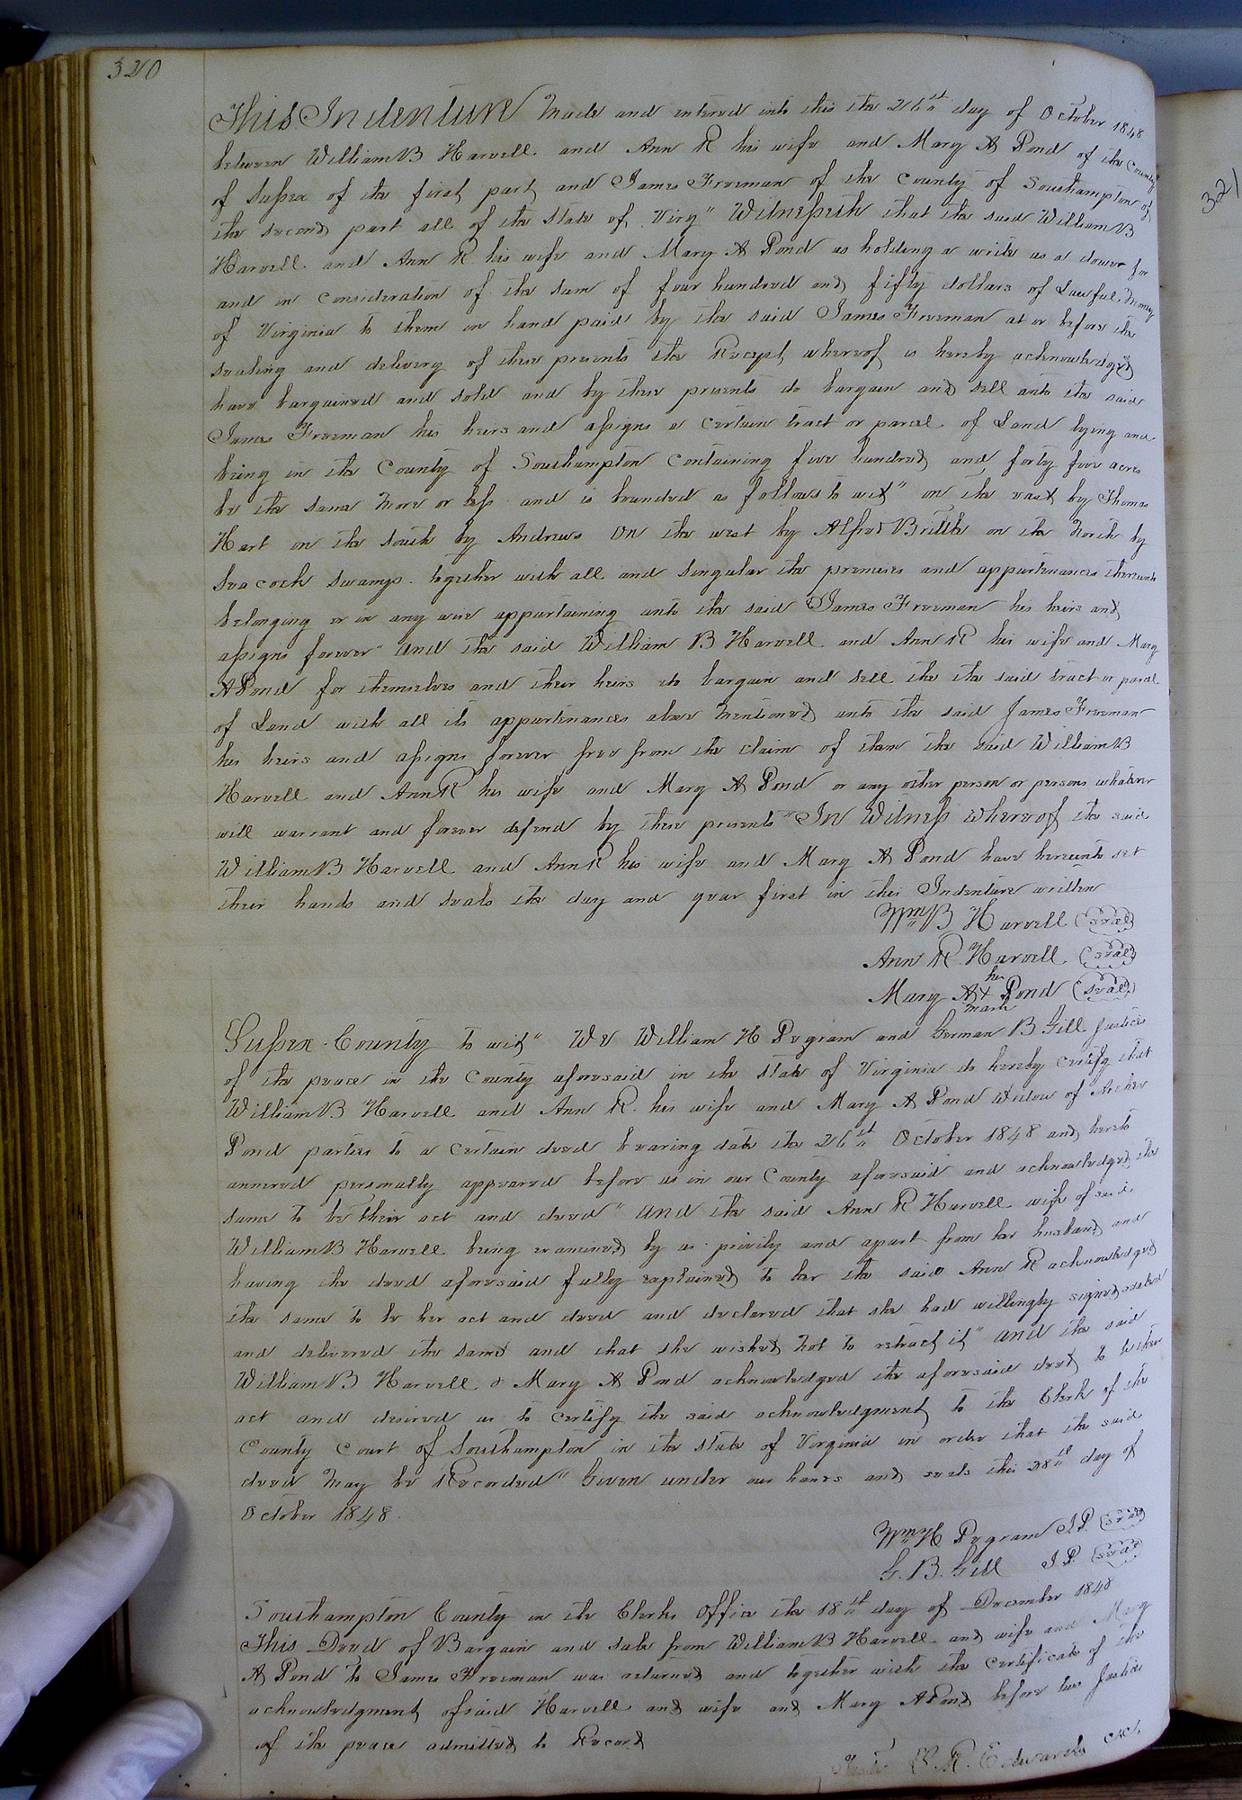 320
This Indenture Made and entered into this the 26th day of October 1848
between William B Harvell and Ann R his wife and Mary A Pond of the County
of Sussex of the first part and James Freeman of the County of Southampton of
the second part all of the State of Virg" Witnesseth that the said William B
Harvell and Ann R his wife and Mary A Pond as holding a write as a dower for
and in consideration of the sum of four hundred and fifty dollars of Lawful Money
of Virginia to them in hand paid by the said James Freeman at or before the
sealing and delivery of these presents the Recept whereof is hereby acknowledged
have bargained and sold and by these presents do bargain and sell unto the said
James Freeman his heirs and assigns a certain tract or parcel of Land lying and
being in the County of Southampton Containing five hundred and forty four acres
be the same More or less and is bounded as follows to wit" on the east by Thomas
Hart on the South by Andrews On the west by Alfred Brittle on the North by
Seacock swamp. together with all and singular the premises and appurtenances thereunto
belonging or in any wise appertaining unto the said James Freeman his heirs and
assigns forever" And the said William B Harvell and Ann R his wife and Mary
A Pond for themselves and their heirs do bargain and sell the the said tract or parcel
of Land with all its appurtenances above Mentioned unto the said James Freeman
his heirs and assigns forever free from the claim of them the said William B
Harvell and Ann R his wife and Mary A Pond or any other person or persons whatever
will warrant and forever defend by these presents" In Witness whereof the said
William B Harvell and Ann R his wife and Mary A Pond have hereunto set
their hands and seals the day and year first in this Indenture written
Wm B Harvell (Seal)
Ann R Harvell (Seal)
her
Mary A X Pond (Seal)
mark
Sussex County to wit" We William H Pegram and German B Gill Justices
of the peace in the County aforesaid in the State of Virginia do hereby certify that
William B Harvell and Ann R. his wife and Mary A Pond Widow of Archer
Pond parties to a certain deed bearing date the 26th October 1848 and hereto
annexed personally appeared before us in our County aforesaid and acknowledged the
same to be their act and deed" And the said Ann R Harvell wife of said
William B Harvell being examined by us privily and apart from her husband and
having the deed aforesaid fully explained to her the said Ann R acknowledged
the same to be her act and deed and declared that she had willingly signed sealed
and delivered the same and that she wished not to retract it" And the said
William B Harvell & Mary A Pond acknowledged the aforesaid deed to be their
act and desired us to certify the said acknowledgment to the Clerk of the
County Court of Southampton in the State of Virginia in order that the said
deed May be Recorded" Given under our hands and seals this 28th day of
October 1848.
Wm H Pegram J.P. (Seal)
G. B. Gill J.P. (Seal)
Southampton County in the Clerks Office the 18th day of December 1848
This Deed of Bargain and Sale from William B Harvell and wife and Mary
A Pond to James Freeman was returned and together with the certificate of the
acknowledgment of said Harvell and wife and Mary A Pond before two Justices
of the peace admitted to Record
Edwards
321